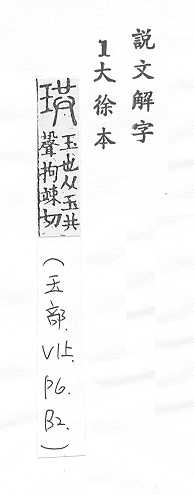 說文解字
1大徐本
珙 玉也从玉共
聲拘竦切
(玉部.V1上.P6.B2.)